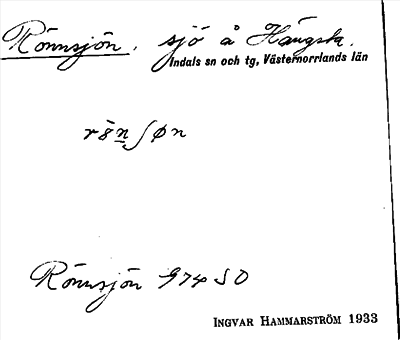 Rönnsjön, sjö å Hängsta.
Indals sn och tg, Västernorrlands län
Rönnsjön 974 SO
INGVAR HAMMARSTRÖM 1933